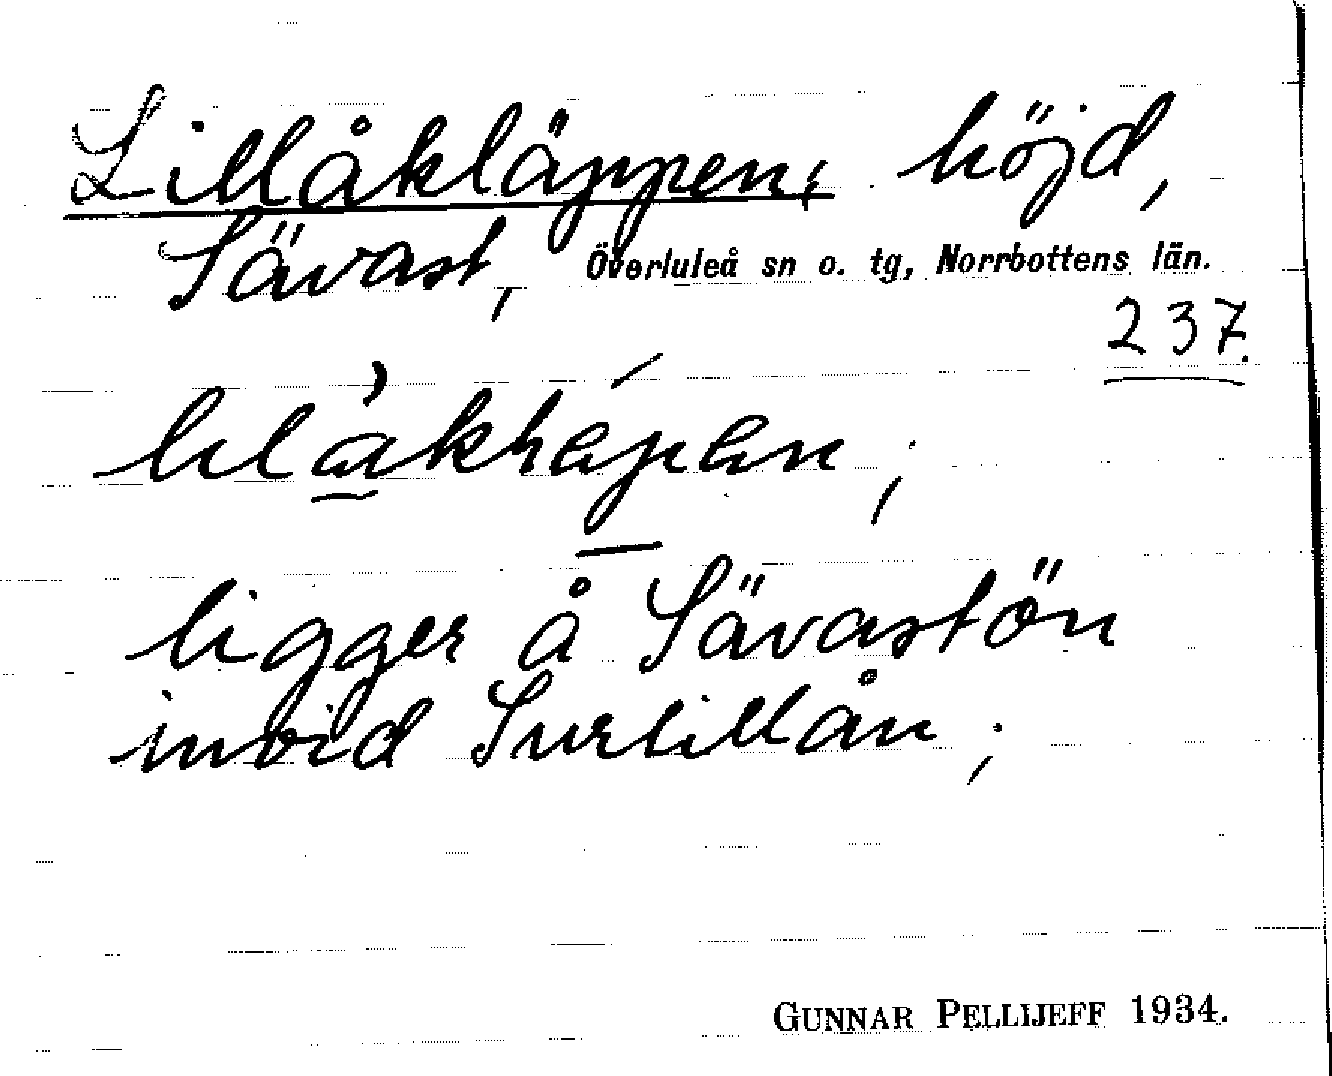 Lillåkläppen; höjd,
Sävast, Överluleå sn o. tg, Norrbottens län.
237.
ligger å Sävastön
invid Surlillån;
GUNNAR PELLIJEFF 1934.